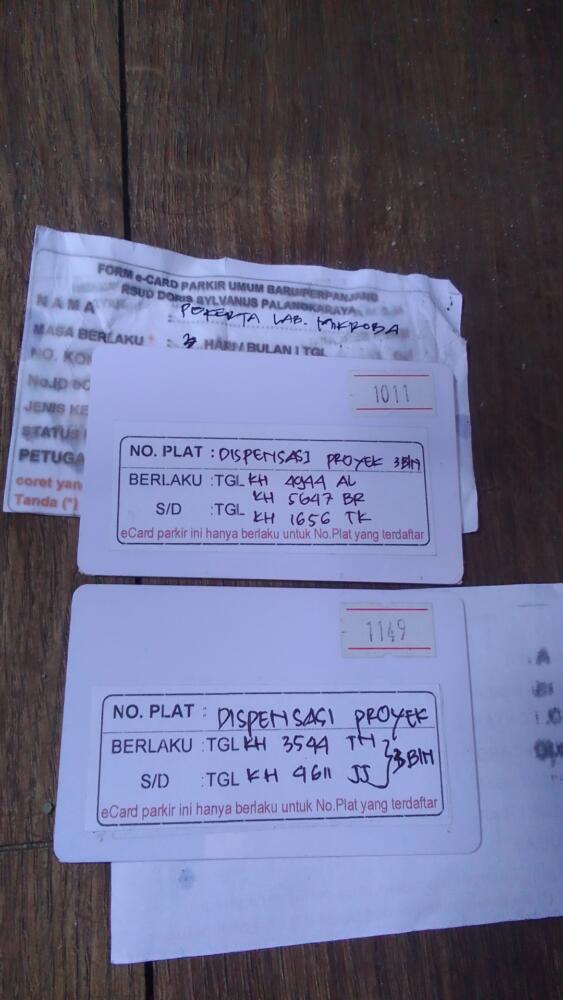 FORM e-CARD PARKIR UMUM BARU/PERPANJANG
RSUD DORIS SYLVANUS PALANGKARAYA
NAMA : PEKERTA LAB. MIKROBA
MASA BERLAKU * : 3 HARI / BULAN | TGL
NO. KON
No.ID eC
JENIS KE
STATUS
PETUGA
coret yan
Tanda (*)
1011
NO. PLAT : DISPENSASI PROYEK 3 BLN
BERLAKU :TGL KH 4944 AL
KH 5647 BR
S/D :TGL KH 1656 TK
eCard parkir ini hanya berlaku untuk No.Plat yang terdaftar
1149
NO. PLAT : DISPENSASI PROYEK
BERLAKU :TGL KH 3544 TH
3 BLN
S/D :TGL KH 4611 JJ
eCard parkir ini hanya berlaku untuk No.Plat yang terdaftar